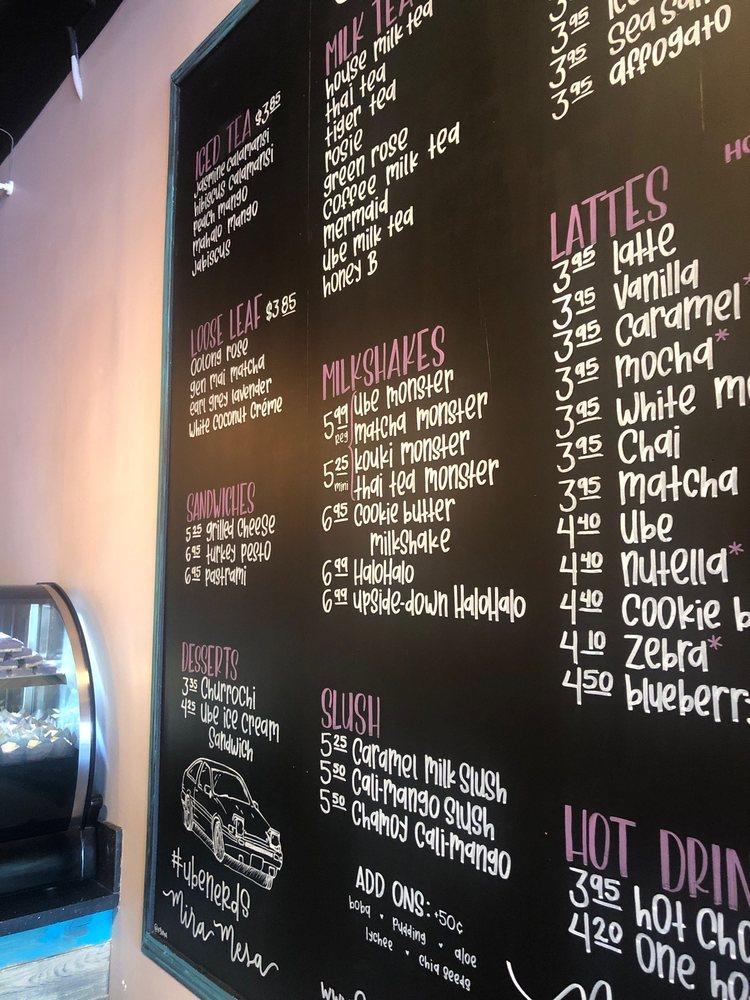 ICED TEA $3.85
Jasmine Calamansi
hibiscus Calamansi
peach mango
mahalo mango
Jabiscus
LOOSE LEAF $3.85
Oolong rose
gen mai matcha
earl grey lavender
White Coconut Créme
SANDWICHES
5.25 grilled Cheese
6.95 turkey pesto
6.95 pastrami
DESSERTS
3.35 Churrochi
4.25 Ube ice cream
Sandwich
#ubenerds
Mira Mesa
MILK TEA
house milk tea
thai tea
tiger tea
rosie
green rose
Coffee milk tea
mermaid
ube milk tea
honey B
MILKSHAKES
5.99 reg
5.25 mini
Ube monster
matcha monster
kouki monster
thai tea monster
6.95 Cookie butter
milkshake
6.99 HaloHalo
6.99 upside-down HaloHalo
SLUSH
5.25 Caramel Milk Slush
5.50 Cali-mango Slush
5.50 Chamoy Cali-mango
ADD ONS: +50¢
boba • pudding • aloe
lychee • chia seeds
3.95
3.95
3.95 Sea Sa
3.95 affogato
LATTES
3.95 latte
3.95 vanilla
3.95 Caramel*
3.95 mocha*
3.95 White m
3.95 Chai
3.95 matcha
4.40 Ube
4.40 nutella*
4.40 Cookie b
4.10 Zebra*
4.50 blueberry
HOT DRIN
3.95 hot Cho
4.20 One ho